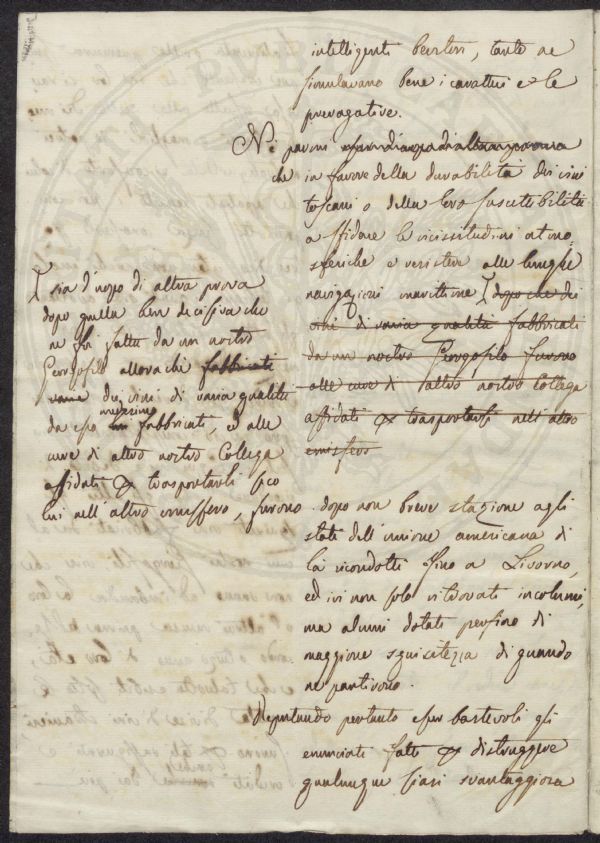 intelligenti bevitori, tanto ne
simulavano bene i caratteri e le
prerogative.
Nè parmi
che in favore della durabilità dei vini
toscani o della loro suscettibilità
a sfidare le vicissitudini atmo
sferiche e resistere alle lunghe
navigazioni marittime [dopo che dei
vini di varia qualità fabbricati
da un nostro Georgofilo furono
alle cure di altro nostro Collega
affidati per trasportarli nell'altro
emisfero
[sia d'uopo di altra prova
dopo quella ben decisiva che
ne fu fatta da un nostro
Georgofilo allorachè fabbricati
varie dei vini di varia qualità
da esso medesimo fabbricati, ed alle
cure di altro nostro Collega
affidati per trasportarli seco
lui nell'altro emisfero, furono
dopo non breve stazione agli
stati dell'unione americana di
là ricondotti fino a Livorno,
ed ivi non solo ritrovati incolumi,
ma alcuni dotati persino di
maggiore squisitezza di quando
ne partirono.
Reputando pertanto esser bastevoli gli
enunciati fatti per distruggere
qualunque siasi svantaggiosa